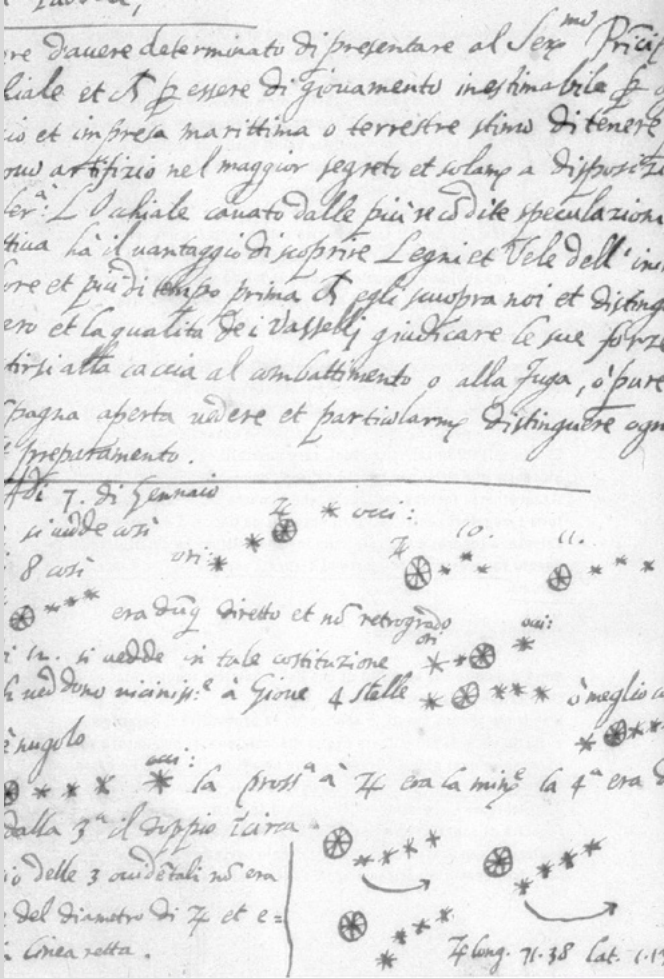 re d'avere determinato di presentare al Ser.mo Prici
iale et ch p essere di giovamento inestimabile p
io et impresa marittima o terrestre stimo di tenere
artifizio nel maggior segreto et solam a disposizi
L Ochiale cavato dalle più recōdite speculazioni
tiva ha il vantaggio di scoprire Legni et Vele dell' ini
ore et più di tempo prima ch egli scuopra noi et disting
ero et la qualita de i Vasselli giudicare le sue forze
tirsi alla caccia al combattimento o alla fuga, ò pure
pagna aperta vedere et particolarm distinguere ogn
preparamento.
di 7. di Gennaio
si vedde cosi ♃ occi:
8 cosi ori: ♃ 10. 11.
era dūq diretto et nō retrogrado
12. si vedde in tale costituzione ori: occi:
veddono viciniss:e à Giove 4 stelle ò meglio
è nugolo
occi: la pross.a à ♃ era la min.e la 4.a era
dalla 3.a il doppio circa
delle 3 occidētali nō era
del diametro di ♃ et e=
linea retta.
♃ long. 71.38 lat. 1.1